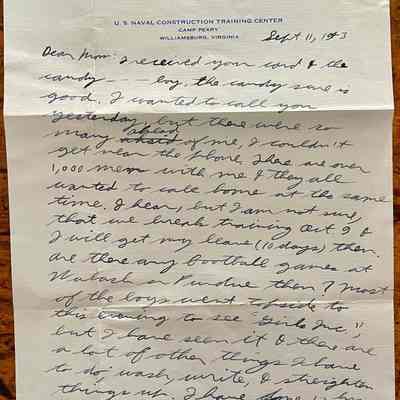 U. S. NAVAL CONSTRUCTION TRAINING CENTER
CAMP PEARY
WILLIAMSBURG, VIRGINIA
Sept 11, 1943
Dear Mom: I received your card & the
candy --- boy, the candy sure is
good. I wanted to call you
yesterday, but there were so
many ahead of me, I couldn't
get near the phone. There are over
1,000 men with me & they all
wanted to call home at the same
time. I hear, but I am not sure,
that we break training Oct 9 &
I will get my leave (10 days) then.
Are there any football games at
Wabash or Purdue then? Most
of the boys went topside to
this evening to see "Girls Inc,"
but I have seen it & there are
a lot of other things I have
to do, wash, write, & streighten
things up. I have